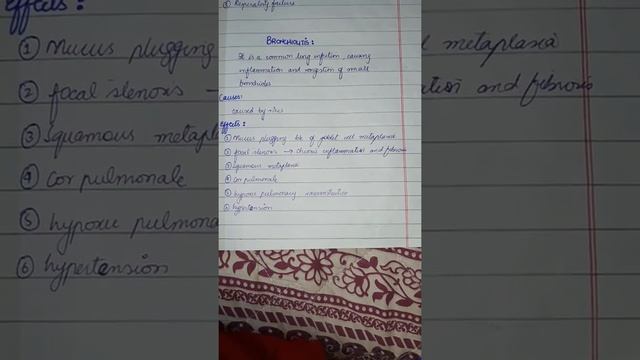 ⑤ Respiratory failure
Bronchiolitis:
It is a common lung infection, causing
inflammation and congestion of small
bronchioles
Causes:
caused by virus
Effects:
① Mucus plugging b/c of goblet cell metaplasia
② focal stenosis → chronic inflammation and fibrosis
③ Squamous metaplasia
④ Cor pulmonale
⑤ hypoxic pulmonary vasoconstriction
⑥ hypertension
effects:
① Mucus plugging
② focal stenosis
③ Squamous metap
④ Cor pulmonale
⑤ hypoxic pulmona
⑥ hypertension
metaplasia
ation and fibrosis